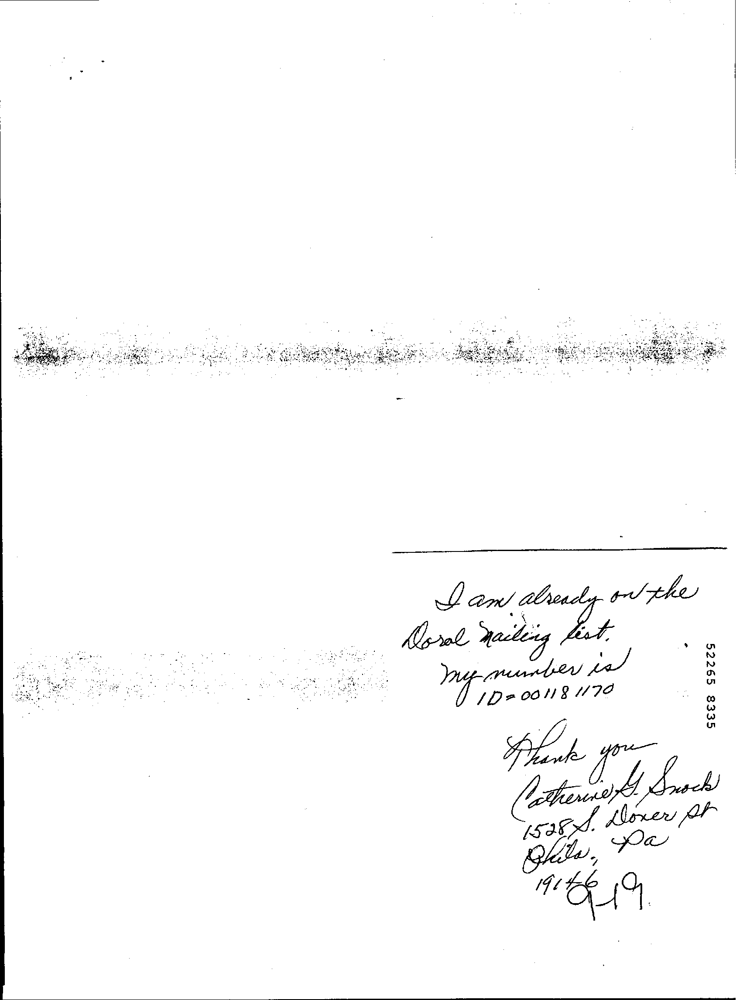 I am already on the
Doral mailing list.
My number is
ID=001181170
Thank you
Catherine G. Snock
1528 S. Dover St
Phila., Pa
19146
9-19
52265 8335